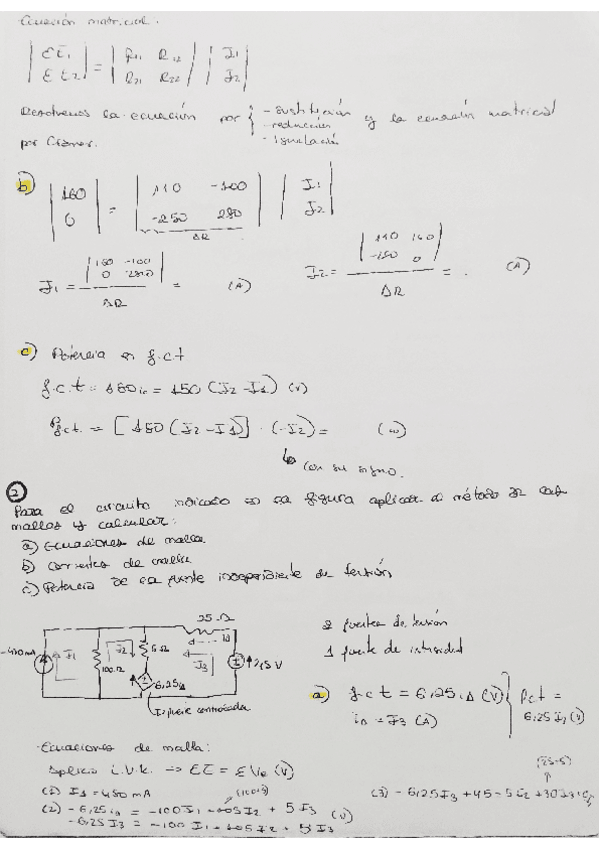 Ecuación matricial.
| Σε1 | = | R11 R12 | | I1 |
| Σε2 | | R21 R22 | | I2 |
Resolvemos la ecuación por { - sustitución
- reducción
- igualación
y la ecuación matricial
por Cramer.
b) | 160 | = | 110 -100 | | I1 |
| 0 | | -250 280 | | I2 |
ΔR
I1 = | 160 -100 | = (A)
| 0 280 |
ΔR
I2 = | 110 160 | = . (A)
| -250 0 |
ΔR
c) Potencia en f.c.t
f.c.t = 150 (I2 - I1) (V)
Pfct. = [150 (I2 - I1)] · (-I2) = (w)
↳ con su signo.
2 Para el circuito indicado en la figura aplicar el método de las
mallas y calcular:
a) Ecuaciones de malla
b) Corrientes de malla
c) Potencia de la fuente independiente de tensión
25 Ω
I1
100 Ω
I2
5 Ω
I3
6,25 iΔ
2 fuentes de tensión
1 fuente de intensidad
a) f.c.t = 6,25 iΔ (V)
iΔ = I3 (A)
fct =
6,25 I3 (V)
Ecuaciones de malla:
Aplico L.V.K. ⇒
(2) - 6,25 iΔ = -100 I1 - 105 I2 + 5 I3 (V)
-6,25 I3 = -100 I1 - 105 I2 + 5 I3